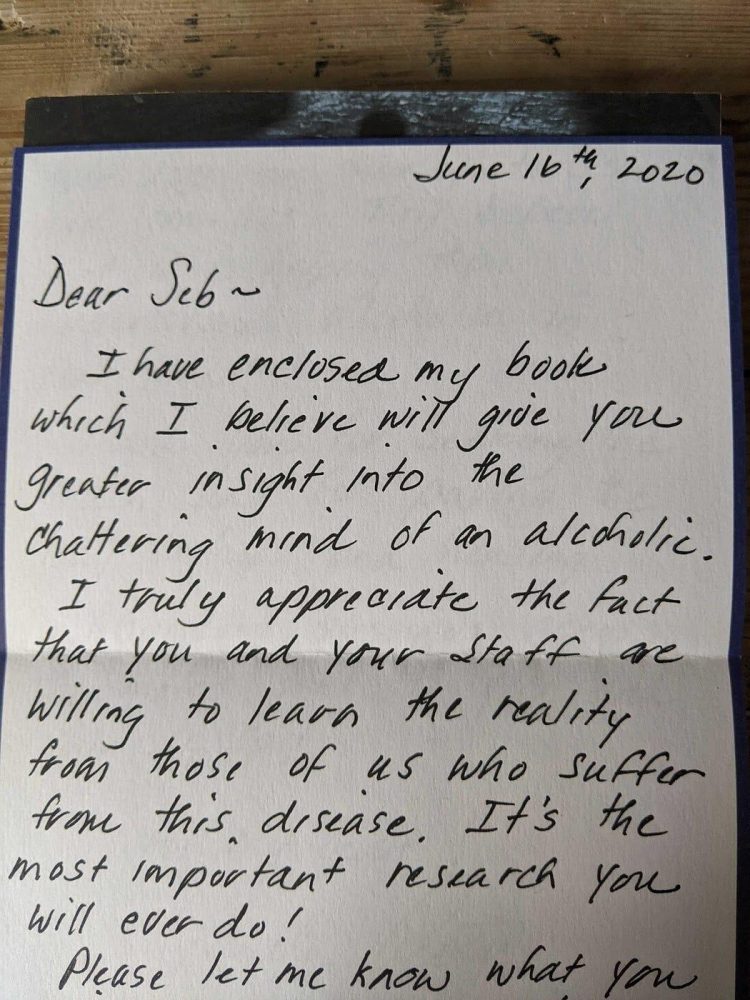 June 16th, 2020
Dear Seb ~
I have enclosed my book
which I believe will give you
greater insight into the
chattering mind of an alcoholic.
I truly appreciate the fact
that you and your staff are
willing to learn the reality
from those of us who suffer
from this disease. It's the
most important research you
will ever do!
Please let me know what you